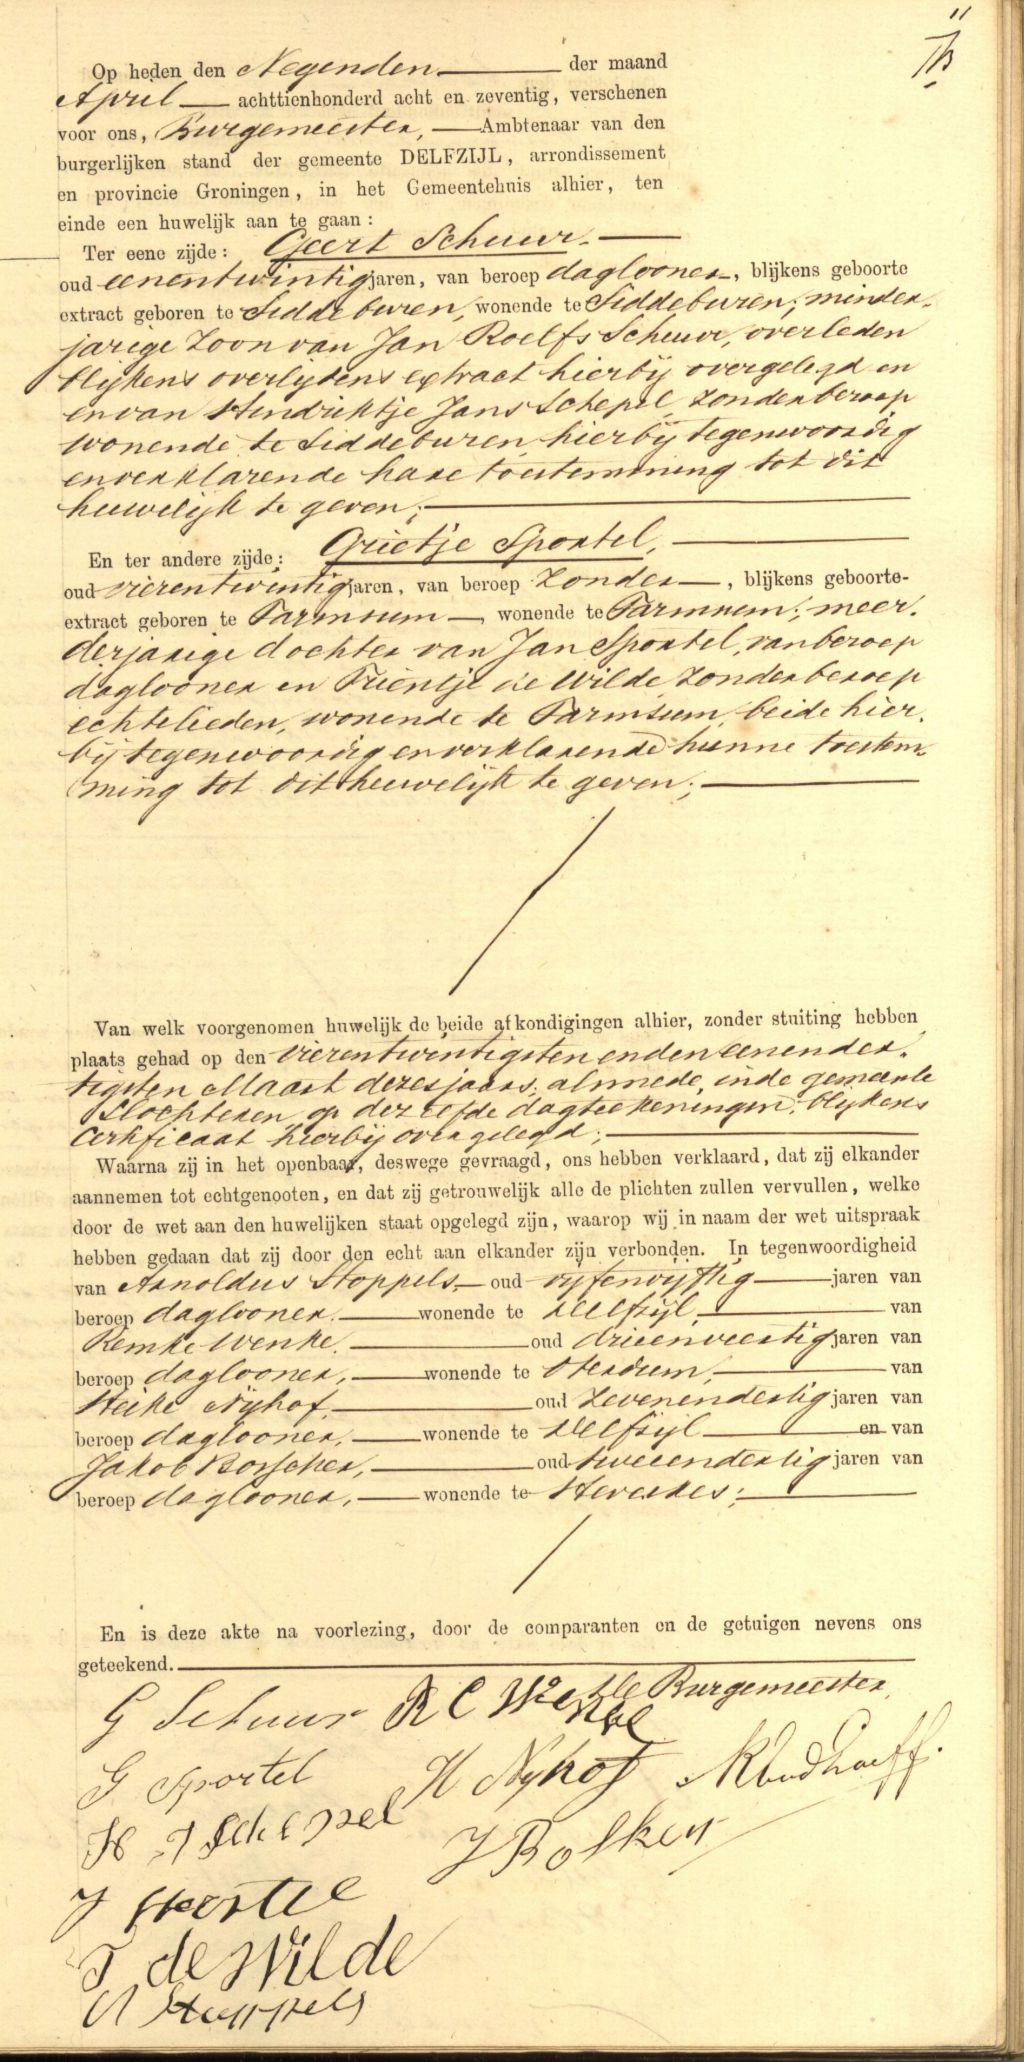 11
Op heden den Negenden der maand
April achttienhonderd acht en zeventig, verschenen
voor ons, Burgemeester, Ambtenaar van den
burgerlijken stand der gemeente DELFZIJL, arrondissement
en provincie Groningen, in het Gemeentehuis alhier, ten
einde een huwelijk aan te gaan:
Ter eene zijde: Geert Schuur.
oud eenentwintig jaren, van beroep daglooner, blijkens geboorte
extract geboren te Siddeburen, wonende te Siddeburen; minder-
jarige Zoon van Jan Roelfs Schuur, overleden
blijkens overlijdens extract hierbij overgelegd en
en van Hindriktje Jans Schepel, zonder beroep
wonende te Siddeburen, hierbij tegenwoordig
en verklarende hare toestemming tot dit
huwelijk te geven;
En ter andere zijde: Grietje Sportel,
oud vierentwintig jaren, van beroep Zonder, blijkens geboorte-
extract geboren te Farmsum, wonende te Farmsum; meer-
derjarige dochter van Jan Sportel, van beroep
daglooner en Trientje de Wilde, zonder beroep
echtelieden, wonende te Farmsum, beide hier-
bij tegenwoordig en verklarende hunne toestem-
ming tot dit huwelijk te geven;
Van welk voorgenomen huwelijk de beide afkondigingen alhier, zonder stuiting hebben
plaats gehad op den vierentwintigsten en den eenender-
tigsten Maart dezes jaars; alsmede, in de gemeente
Slochteren op dezelfde dagteekeningen; blijkens
Certificaat hierbij overgelegd;
Waarna zij in het openbaar, deswege gevraagd, ons hebben verklaard, dat zij elkander
aannemen tot echtgenooten, en dat zij getrouwelijk alle de plichten zullen vervullen, welke
door de wet aan den huwelijken staat opgelegd zijn, waarop wij in naam der wet uitspraak
hebben gedaan dat zij door den echt aan elkander zijn verbonden. In tegenwoordigheid
van Arnoldus Stoppels, oud vijfenvijftig jaren van
beroep daglooner, wonende te Delfzijl, van
Remke Wenke, oud drieenveertig jaren van
beroep daglooner, wonende te Oterdum, van
Heike Nijhof, oud zevenendertig jaren van
beroep daglooner, wonende te Delfzijl en van
Jakob oud tweeendertig jaren van
beroep daglooner, wonende te Heveskes;
En is deze akte na voorlezing, door de comparanten en de getuigen nevens ons
geteekend.
G Schuur R C Wenke De Burgemeester,
G Sportel H Nijhof
H J Schepel
J Sportel
T de Wilde
A Stoppels